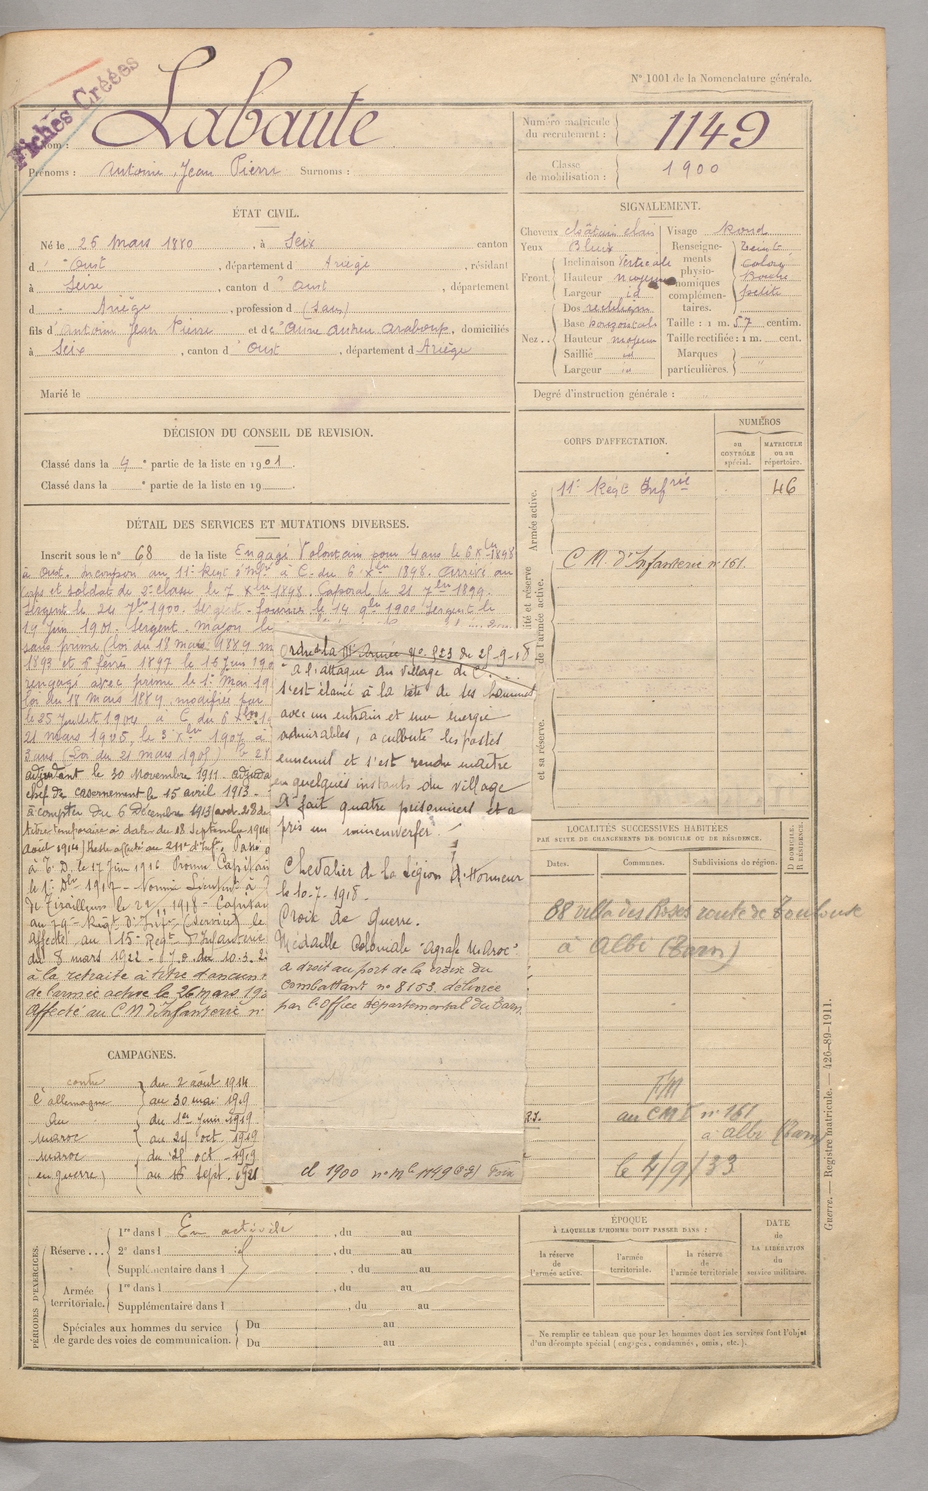 N° 1001 de la Nomenclature générale.
Fiches Créées
Nom : Labaute
Prénoms : Antoine Jean Pierre Surnoms :
Numéro matricule du recrutement : 1149
Classe de mobilisation : 1900
ÉTAT CIVIL.
Né le 26 Mars 1880, à Seix canton
d' Oust, département d Ariège, résidant
à Seix, canton d' Oust, département
d Ariège, profession d (sans)
fils d' Antoine Jean Pierre et de domiciliés
à Seix, canton d' Oust, département d Ariège
Marié le
SIGNALEMENT.
Cheveux châtain clair Visage Rond
Yeux Bleus
Front. Inclinaison Verticale
Hauteur moyen
Largeur id
Nez.. Dos rectiligne
Base horizontale
Hauteur moyen
Saillie id
Largeur id
Renseignements physionomiques complémentaires. Teint coloré Bouche petite
Taille : 1 m. 57 centim.
Taille rectifiée : 1 m. cent.
Marques particulières.
Degré d'instruction générale :
DÉCISION DU CONSEIL DE REVISION.
Classé dans la 4e partie de la liste en 1901.
Classé dans la e partie de la liste en 19
DÉTAIL DES SERVICES ET MUTATIONS DIVERSES.
Inscrit sous le n° 68 de la liste Engagé Volontaire pour 4 ans le 6 Xbre 1898
à Oust. Incorporé au 11e Régt d'Infie à C. du 6 Xbre 1898. Arrivé au
corps et soldat de 2e classe le 7 Xbre 1898. Caporal le 21 7bre 1899.
Sergent le 24 7bre 1900. Sergent-fourrier le 14 9bre 1900 Sergent le
19 Juin 1901. Sergent-major le
sans prime (loi du 18 mars 1889 m
1893 et 6 févrer 1897 le 16 Juin 190
rengagé avec prime le 1er Mai 19
loi du 18 mars 1889, modifiée par
le 25 Juillet 1904 à C. du 6 Xbre 19
21 mars 1905, le 3 Xbre 1907 à
3 ans (Loi du 21 mars 1905) le 28
adjudant le 30 Novembre 1911. adjuda
chef de casernement le 15 avril 1913.
à compter du 6 Décembre 1913
à titre temporaire à dater du 18 Septembre 1914
Août 1914 Reste affecté au 211e d'Inf. Passé
à T. D. le 17 Juin 1916 Promu Capitain
le 1er Dbre 1917 - Nommé Lieutnt à
de Tirailleurs le 1918 - Capitain
au 79e Régt d'Infie (Service) le
affecté au 15e Regt d'Infanterie
du 8 mars 1922 - J.O. du 10.3.22
à la retraite à titre d'ancien
de l'armée active le 26 mars 19
Affecté au CM d'Infanterie n°
Ordre de la IIIe Armée N° 923 du 25-9-18
"à l'attaque du village de C...
s'est élancé à la tête de ses hommes
avec un entrain et une énergie
admirables, a culbuté les postes
ennemis et s'est rendu maître
en quelques instants du village
A fait quatre prisonniers et a
pris un minenwerfer."
Chevalier de la Légion d'Honneur
le 10-7-1918.
Croix de Guerre.
Médaille Coloniale "agrafe Maroc"
a droit au port de la croix du
combattant n° 8153 délivrée
par l'Office départemental du Tarn
cl 1900 n° Mle 1149 Foix
CORPS D'AFFECTATION.
NUMÉROS
au CONTRÔLE spécial.
MATRICULE ou au répertoire.
Armée active.
11e Régt Infrie 46
C M. d'Infanterie n° 161.
ité et réserve de l'armée active.
et sa réserve.
LOCALITÉS SUCCESSIVES HABITÉES
PAR SUITE DE CHANGEMENTS DE DOMICILE OU DE RÉSIDENCE.
Dates. Communes. Subdivisions de région.
D DOMICILE. R RÉSIDENCE.
68 villa des Roses route de Toulouse
à Albi (Tarn)
F/M
au CMI n° 161
à Albi (Tarn)
le 4/9/33
R.I.
CAMPAGNES.
contre l'Allemagne du 2 août 1914
au 30 mai 1919
Au Maroc du 1er Juin 1919
au 24 oct. 1919
Maroc du 25 oct - 1919
(en guerre) au 16 sept. 1921
PÉRIODES D'EXERCICES.
Réserve... 1re dans l En activité, du au
2e dans l, du au
Supplémentaire dans l, du au
Armée territoriale. 1re dans l, du au
Supplémentaire dans l, du au
Spéciales aux hommes du service de garde des voies de communication. Du au
Du au
ÉPOQUE
À LAQUELLE L'HOMME DOIT PASSER DANS :
la réserve de l'armée active.
l'armée territoriale.
la réserve de l'armée territoriale
DATE de LA LIBÉRATION du service militaire.
— Ne remplir ce tableau que pour les hommes dont les services font l'objet
d'un décompte spécial (engagés, condamnés, omis, etc.).
Guerre. — Registre matricule. — 426-89-1911.